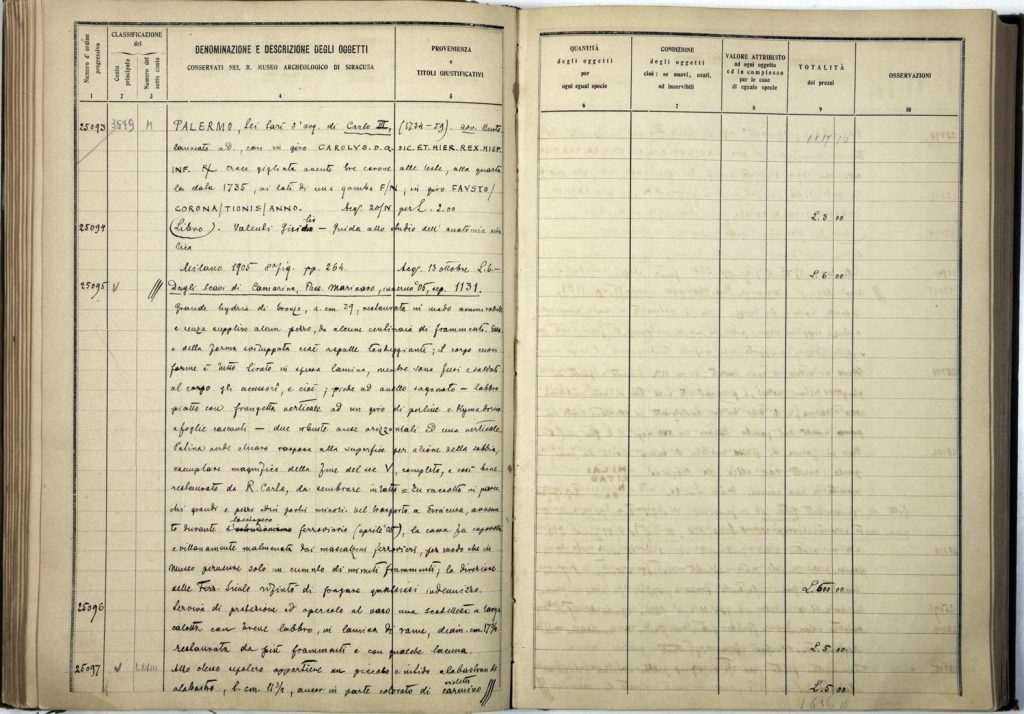 Numero d'ordine progressivo
CLASSIFICAZIONE del
Conto principale
Numero del sotto conto
DENOMINAZIONE E DESCRIZIONE DEGLI OGGETTI
CONSERVATI NEL R. MUSEO ARCHEOLOGICO DI SIRACUSA
PROVENIENZA
e
TITOLI GIUSTIFICATIVI
1 2 3 4 5
25093 3519 M PALERMO, Sei tarì d'arg. di Carlo III, (1734-59). Busto
laureato ad., con in giro CAROLVS.D.G. SIC.ET.HIER.REX.HISP.
INF. croce gigliata avente tre corone alle teste, alla quarta
la data 1735; ai lati di una gamba F/N; in giro FAVSTO/
CORONA/TIONIS/ANNO. Acq. 20/IX per L. 2.00
25094 (Libro). Valenti – Guida allo studio dell'anatomia
Milano 1905 8° fig. pp. 264. Acq. 13 ottobre L. 6.-
25095 v Dagli scavi di Camarina, Pass. Marinaro, inverno 05, sep. 1131.
Grande hydria di bronzo, a. cm. 39, restaurata in modo ammirabile
e senza supplire alcun pezzo, da alcune centinaia di frammenti. Essa
è della forma sviluppata cioè a spalle tondeggianti; il corpo cuori
forme è tutto tirato in spessa lamina, mentre sono fusi e saldati
al corpo gli accessori, e cioè; piede ad anello sagomato – labbro
piatto con frangetta verticale ad un giro di perline e Kyma dorico
a foglie cascanti – due robuste anse orizzontali ed una verticale.
Patina verde chiara rasposa alla superficie per azione della sabbia,
esemplare magnifico della fine del sec. V, completo, e così bene
restaurato da R. Carta, da sembrare intatto = Fu raccolto in parec
chi grandi e pezzi pochi minori. Nel trasporto a Siracusa, avvenu
to durante lo sciopero ferroviario (aprile 05), la cassa fu
e villanamente malmenata dai mascalzoni ferrovieri, per modo che in
Museo pervenne solo un cumulo di minuti frammenti; la direzione
delle Ferr. Sicule rifiutò di pagare qualsiasi indennizzo.
25096 Serviva di protezione ed opercolo al vaso una scodelletta a larga
calotta con breve labbro, in lamina di rame, diam. cm. 17 3/4
restaurata da più frammenti e con qualche lacuna.
25097 v LXVIII Allo stesso sepolcro appartiene un piccolo e nitido alabastron di
alabastro, l. cm. 11 3/4, ancor in parte colorato di violetto carminio
QUANTITÀ
degli oggetti
per
ogni eguai specie
CONDIZIONE
degli oggetti
cioè: se nuovi, usati,
od inservibili
VALORE ATTRIBUITO
ad ogni oggetto
od in complesso
per le cose
di eguale specie
TOTALITÀ
dei prezzi
OSSERVAZIONI
6 7 8 9 10
L. 3 00
L. 6 00
L. 600 00
L. 5 00
L. 5 00